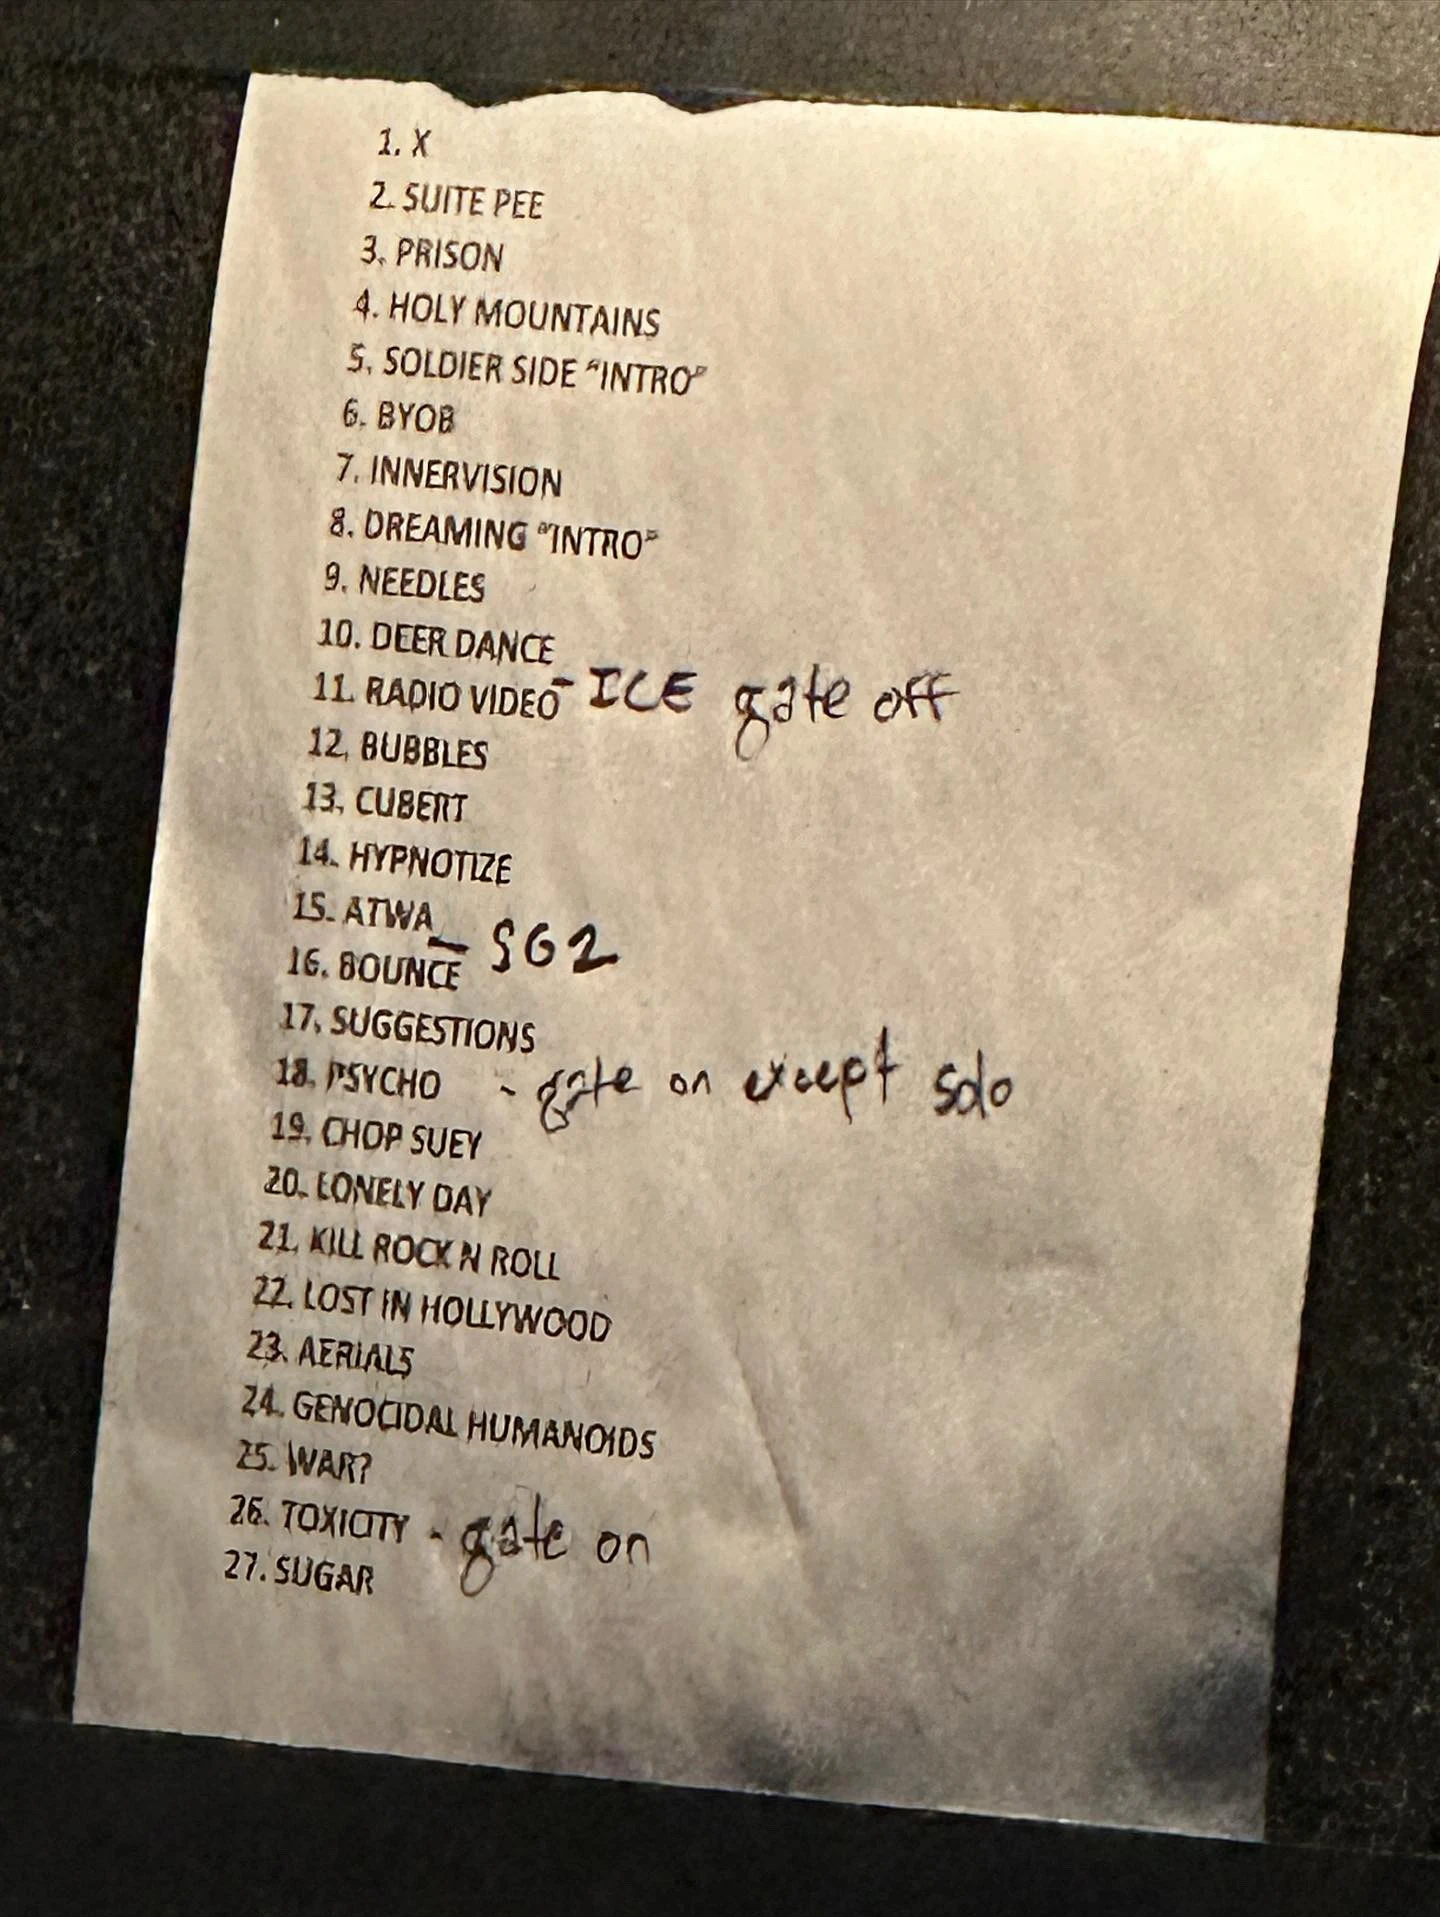 1. X
2. SUITE PEE
3. PRISON
4. HOLY MOUNTAINS
5. SOLDIER SIDE "INTRO"
6. BYOB
7. INNERVISION
8. DREAMING "INTRO"
9. NEEDLES
10. DEER DANCE
11. RADIO VIDEO - ICE gate off
12. BUBBLES
13. CUBERT
14. HYPNOTIZE
15. ATWA - SG2
16. BOUNCE
17. SUGGESTIONS
18. PSYCHO - gate on except solo
19. CHOP SUEY
20. LONELY DAY
21. KILL ROCK N ROLL
22. LOST IN HOLLYWOOD
23. AERIALS
24. GENOCIDAL HUMANOIDS
25. WAR?
26. TOXICITY - gate on
27. SUGAR